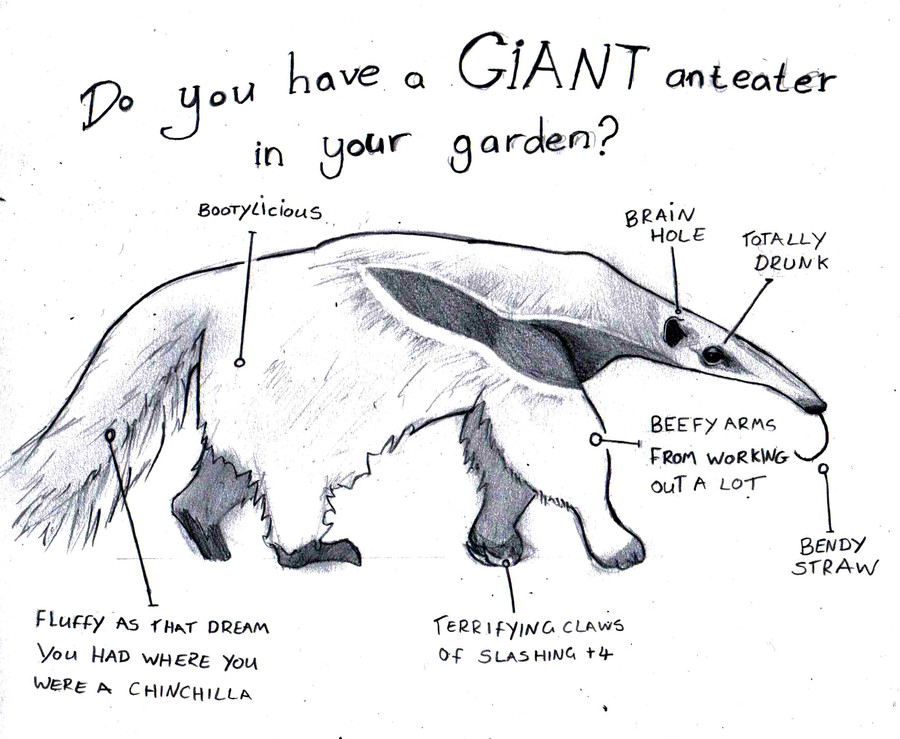 Do you have a GiANT anteater
in your garden?
BOOTYLiCiOUS
BRAiN
HOLE
TOTALLY
DRUNK
BEEFY ARMS
FROM WORKING
OUT A LOT
BENDY
STRAW
TERRiFYiNG CLAWS
Of SLASHiNG +4
FLUFFY AS THAT DREAM
YOU HAD WHERE YOU
WERE A CHINCHILLA